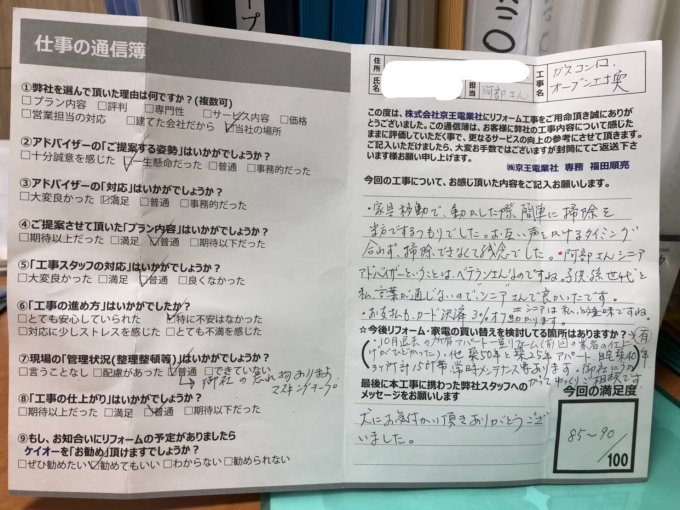 仕事の通信簿
①弊社を選んで頂いた理由は何ですか?(複数可)
□プラン内容 □評判 □専門性 □サービス内容 □価格
□営業担当の対応 □建てた会社だから ☑当社の場所
②アドバイザーの「ご提案する姿勢」はいかがでしょうか?
□十分誠意を感じた ☑一生懸命だった □普通 □事務的だった
③アドバイザーの「対応」はいかがでしょうか?
□大変良かった ☑満足 □普通 □事務的だった
④ご提案させて頂いた「プラン内容」はいかがでしょうか?
□期待以上だった □満足 ☑普通 □期待以下だった
⑤「工事スタッフの対応」はいかがでしょうか?
□大変良かった □満足 ☑普通 □良くなかった
⑥「工事の進め方」はいかがでしたか?
□とても安心していられた ☑特に不安はなかった
□対応に少しストレスを感じた □とても不満を感じた
⑦現場の「管理状況(整理整頓等)」はいかがでしょうか?
□言うことなし □配慮があった ☑普通 □できていない
↳御社の忘れ物あります。
マスキングテープ
⑧「工事の仕上がり」はいかがでしょうか?
□期待以上だった □満足 ☑普通 □期待以下だった
⑨もし、お知合いにリフォームの予定がありましたら
ケイオーを「お勧め」頂けますでしょうか?
□ぜひ勧めたい ☑勧めてもいい □わからない □勧められない
住所
氏名
担当
阿部さん
工事名
ガスコンロ、
オーブン工事
この度は、株式会社京王電業社にリフォーム工事をご用命頂き誠にありが
とうございました。この通信簿は、お客様に弊社の工事内容について感じた
ままに評価していただく事で、更なるサービスの向上の参考にさせて頂きます。
ご記入いただけましたら、大変お手数ではございますが封筒にてご返送下さ
います様お願い申し上げます。
㈱京王電業社 専務 福田順亮
今回の工事について、お感じ頂いた内容をご記入お願いします。
・家具移動で、動かした際、簡単に掃除を
当方でするつもりでした。お互い声をかけるタイミング
合わず、掃除できなくて残念でした。・阿部さんシニア
アドバイザーということは、ベテランさんなのですね。子供・孫世代と
私、言葉が通じないので"シニア"さんで良かったです。
・お支払も、カード決済3%オフ助かります。
☆今後リフォーム・家電の買い替えを検討してる箇所はありますか?
有
最後に本工事に携わった弊社スタッフへの
メッセージをお願いします
犬にお気付かい頂きありがとうござ
いました。
今回の満足度
85〜90
/100